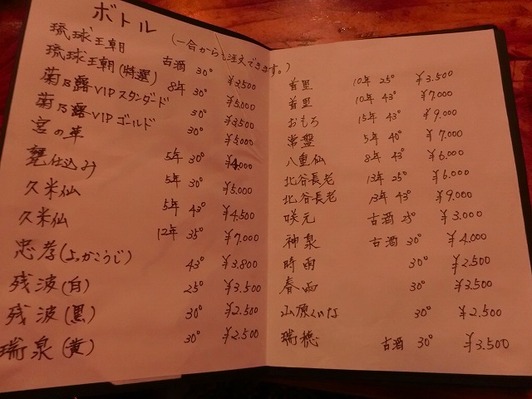 ボトル
(一合から注文できます。)
琉球王朝 古酒 30° ¥3,500
琉球王朝(特選) 8年 30° ¥5,000
菊乃露VIPスタンダード 30° ¥3,500
菊乃露VIPゴールド 30° ¥5,000
宮の華 5年 30° ¥4,000
甕仕込み 5年 30° ¥5,000
久米仙 5年 43° ¥4,500
久米仙 12年 35° ¥7,000
忠孝(よっかこうじ) 43° ¥3,800
残波(白) 25° ¥3,500
残波(黒) 30° ¥2,500
瑞泉(黄) 30° ¥2,500
首里 10年 25° ¥3,500
首里 10年 43° ¥7,000
おもろ 15年 43° ¥9,000
常盤 5年 40° ¥7,000
八重仙 8年 43° ¥6,000
北谷長老 13年 25° ¥6,000
北谷長老 13年 43° ¥9,000
咲元 古酒 25° ¥3,000
神泉 古酒 30° ¥4,000
時雨 30° ¥2,500
春雨 30° ¥3,500
山原くいな 30° ¥2,500
瑞穂 古酒 30° ¥3,500